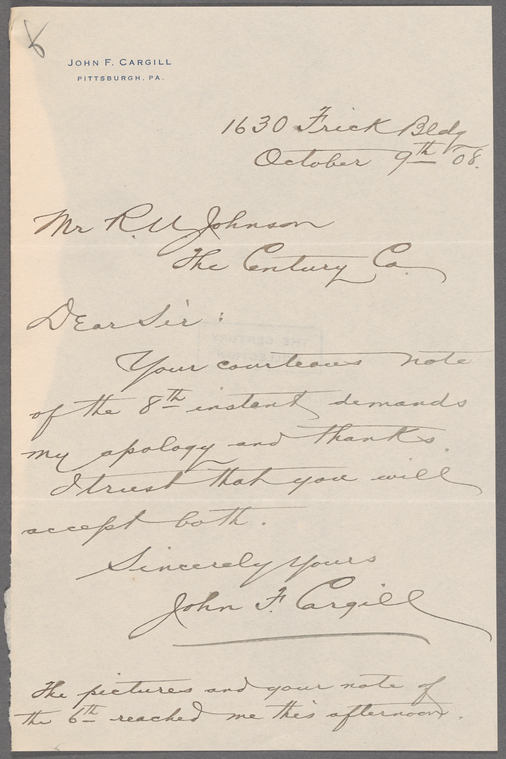 8
JOHN F. CARGILL
PITTSBURGH, PA.
1630 Frick Bldg
October 9th '08.
Mr R. U. Johnson
The Century Co.
Dear Sir:
Your courteous note
of the 8th instant demands
my apology and thanks.
I trust that you will
accept both.
Sincerely yours
John F. Cargill
The pictures and your note of
the 6th reached me this afternoon.